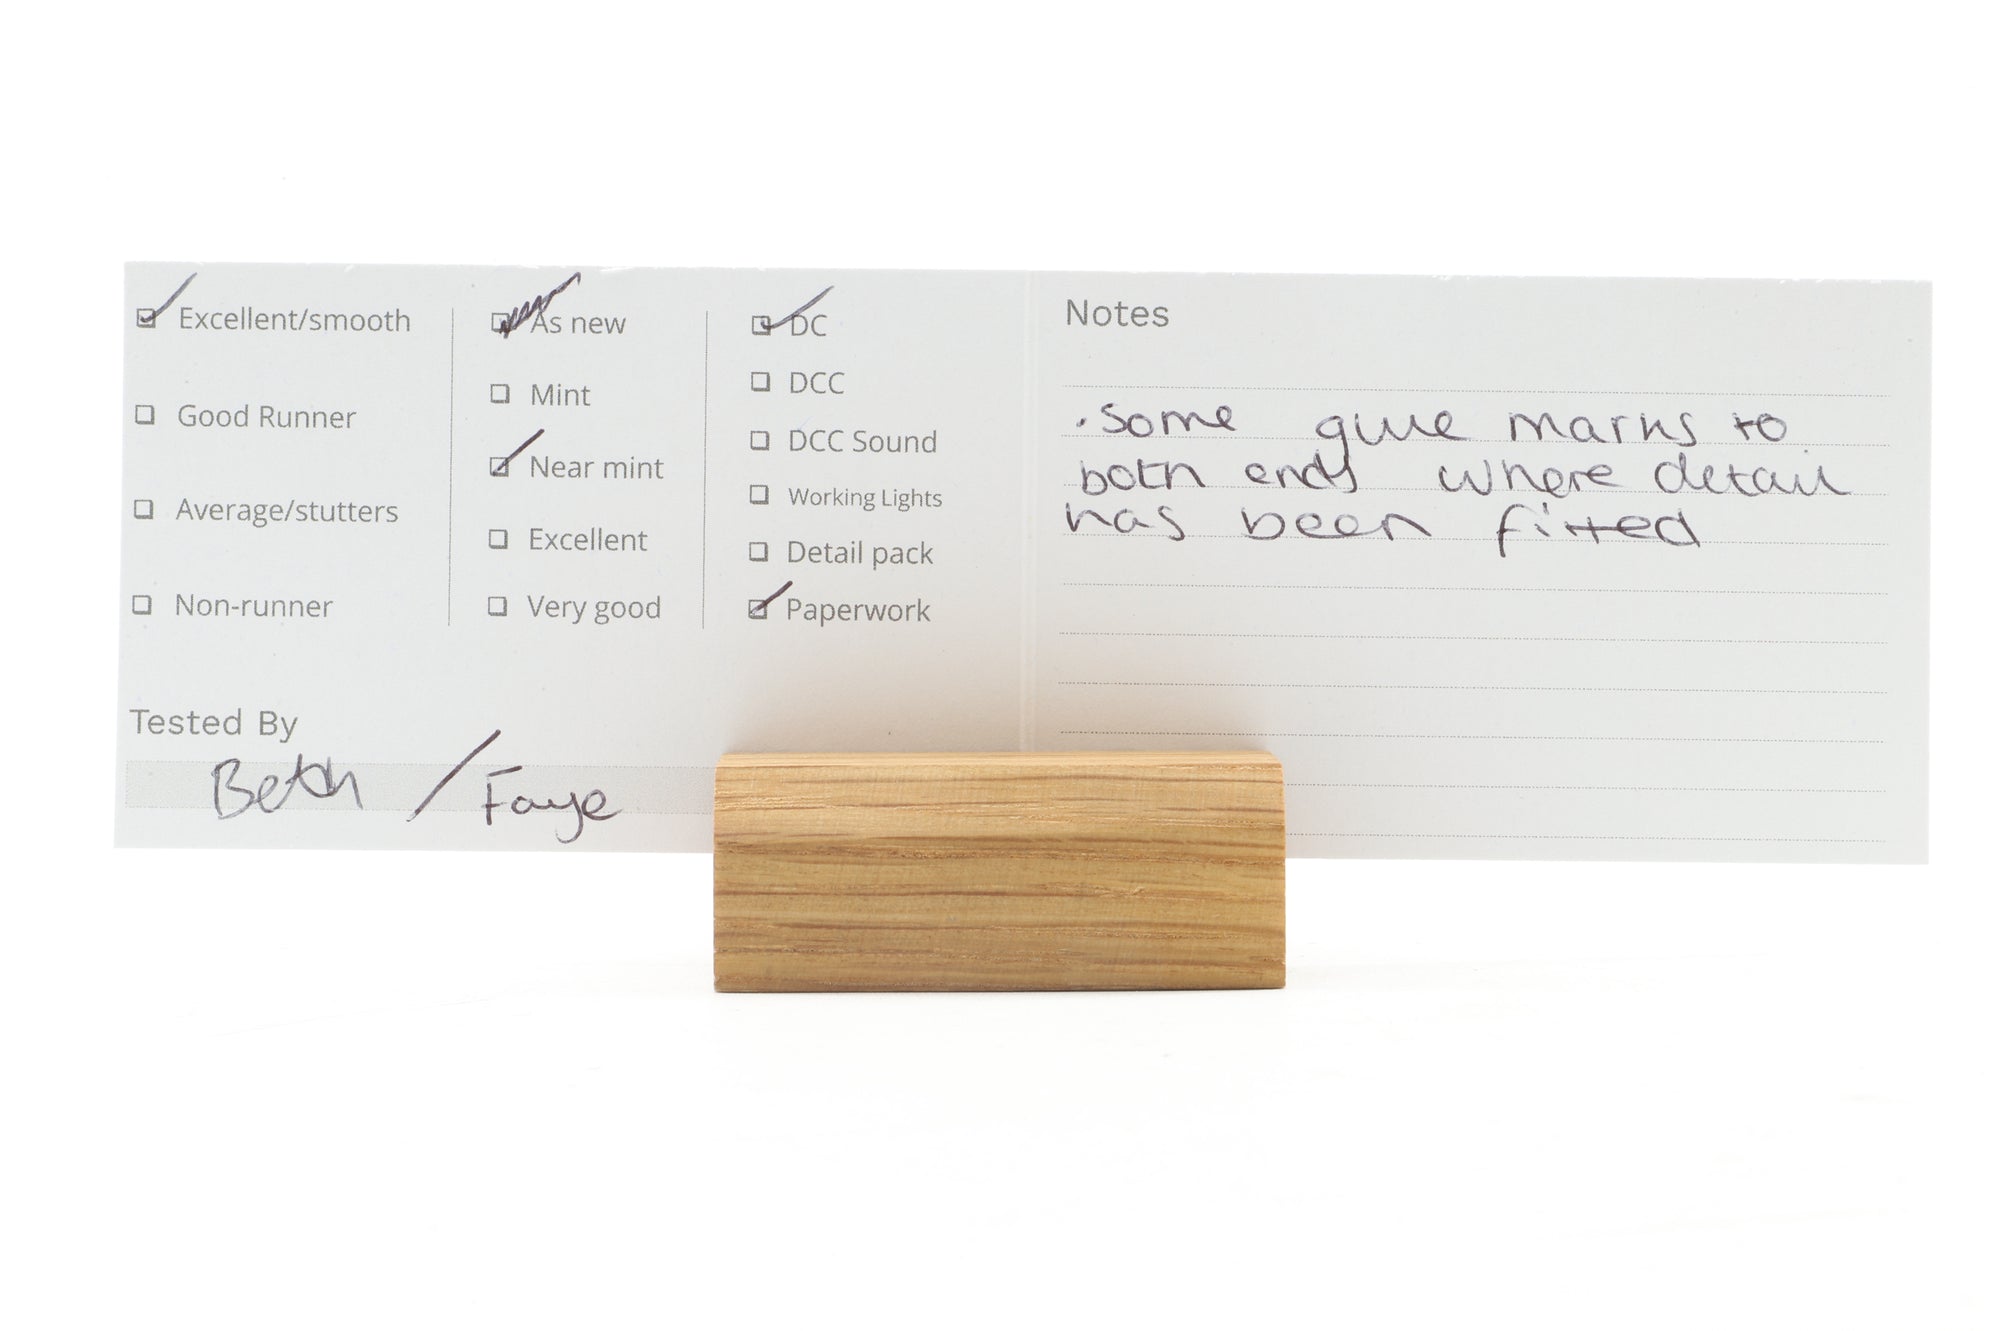 Excellent/smooth
Good Runner
Average/stutters
Non-runner
As new
Mint
Near mint
Excellent
Very good
DC
DCC
DCC Sound
Working Lights
Detail pack
Paperwork
Tested By
Beth / Faye
Notes
. Some glue marks to
both ends where detail
has been fitted